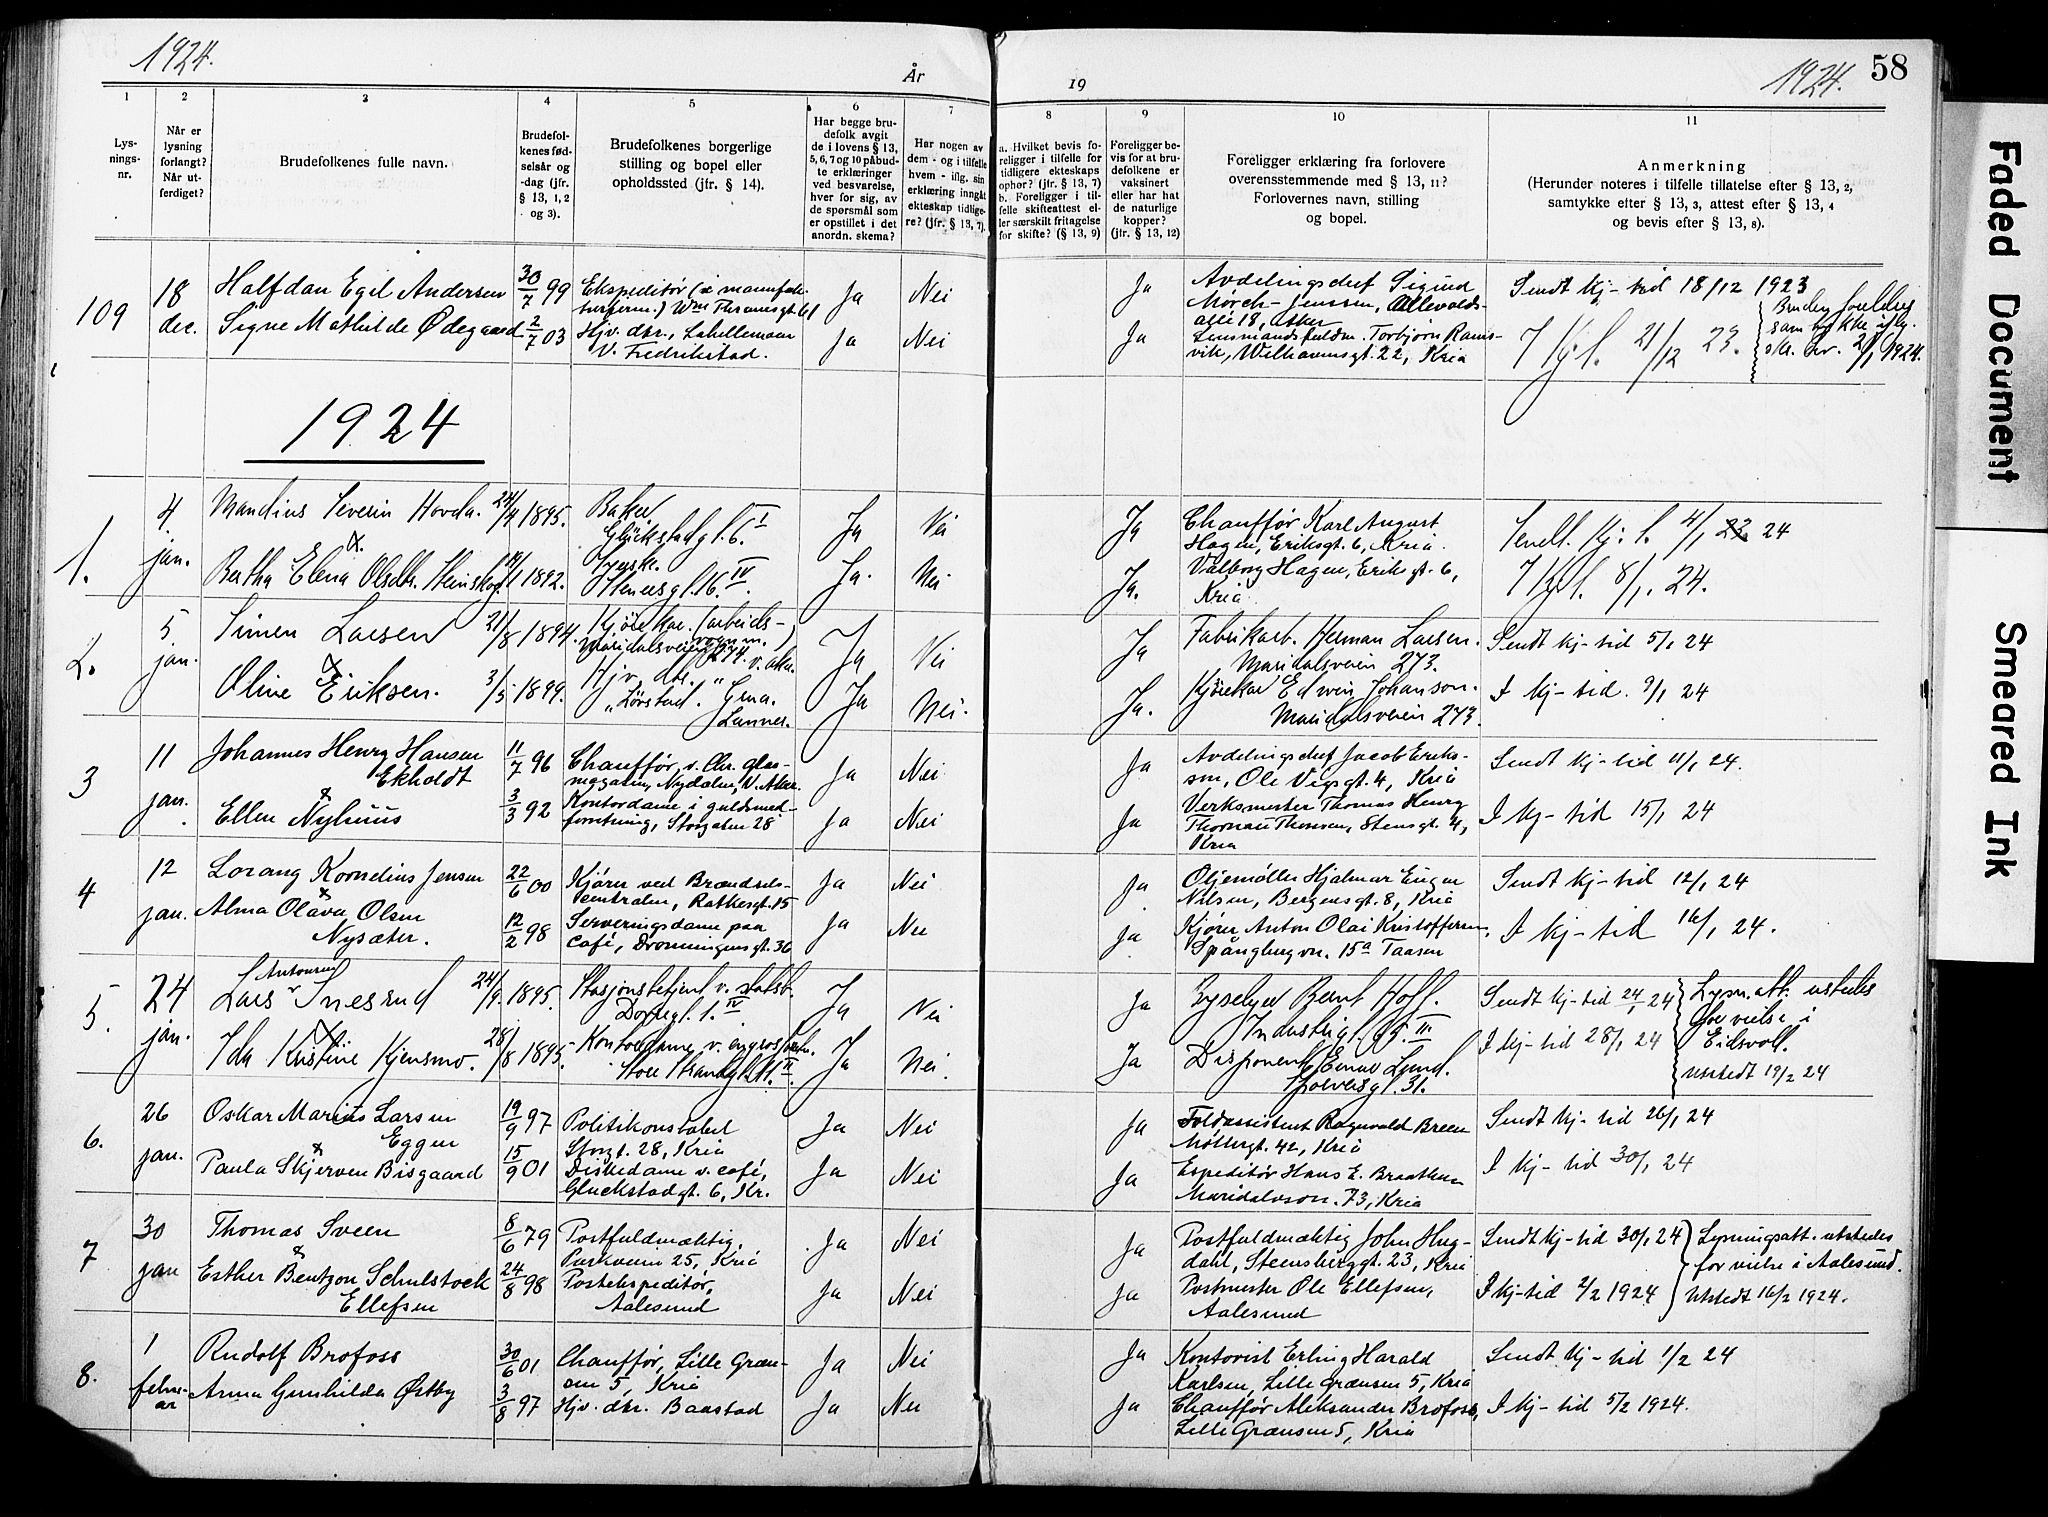 1924.
År
19
1924.
58
1
2
3
4
5
6
7
8
9
10
11
Lys-
nings-
nr.
Når er
lysning
forlangt?
Når ut-
ferdiget?
Brudefolkenes fulle navn.
Brudefol-
kenes fød-
selsår og
-dag (jfr.
§ 13, 1, 2
og 3).
Brudefolkenes borgerlige
stilling og bopel eller
opholdssted (jfr. § 14).
Har begge bru-
defolk avgit
de i lovens § 13,
5, 6, 7 og 10 påbud-
te erklæringer
ved besvarelse,
hver for sig, av
de spørsmål som
er opstillet i det
anordn. skema?
Har nogen av
dem - og i tilfelle
hvem - iflg. sin
erklæring inngåt
ekteskap tidlige-
re? (jfr. § 13, 7).
a. Hvilket bevis fo-
religger i tilfelle for
tidligere ekteskaps
ophør? (jfr. § 13, 7)
b. Foreligger i til-
felle skifteattest el-
ler særskilt fritagelse
for skifte? (§ 13, 9)
Foreligger be-
vis for at bru-
defolkene er
vaksinert
eller har hat
de naturlige
kopper?
(jfr. § 13, 12)
Foreligger erklæring fra forlovere
overensstemmende med § 13, 11?
Forlovernes navn, stilling
og bopel.
Anmerkning
(Herunder noteres i tilfelle tillatelse efter § 13, 2,
samtykke efter § 13, 3, attest efter § 13, 4
og bevis efter § 13, 8).
109
18
dec.
Halfdan Egil Andersen
Signe Mathilde Ødegaard
30/7 99
2/7 03
Ekspeditør (i manufak-
turferm.) Wm Thranesgt. 61
Hjv. dtr., Lahellemoen
V. Fredrikstad.
Ja
Ja
Nei
Nei
Ja
Ja
Avdelingschef Sigurd
Mørch-Jenssen, Ullevolds-
alle 18, Aker
Lensmandsfuldm. Torbjørn Rams-
vik, Welhavensgt. 22, Kria
Sendt Kj-tid 18/12 1923
I Kj. t. 21/12 23.
Brudens forældres
samtykke iflg.
skr. brv. 2/1 1924.
1924
1.
4.
jan.
Mandius Severin Hovda.
Bertha Elena Olsdtr. Stenskog.
24/4 1895.
1892.
Baker
Glückstadgt. 6. I
Syerske.
Stenersgt. 16. IV.
Ja
Ja.
Nei
Nei
Ja
Ja.
Chauffør Karl August
Hagen, Eriksgt. 6, Kria.
Valborg Hagen, Eriksgt. 6,
Kria
Sendt. Kj. t. 4/1 23 24
I Kj. t. 8/1. 24.
2.
5
jan.
Simen Larsen
Oline Eriksen.
21/8 1894.
3/5 1899.
Kjørekar. (arbeids-
vognm.)
Maridalsveien 274. v. Aker.
Hjv. dtr.
"Lørstad".
Ja
Ja
Nei
Nei.
Ja
Ja.
Fabrikarb. Herman Larsen.
Maridalsveien 273.
Kjørekar Edwin Johanson.
Maridalsveien 273.
Sendt Kj-tid 5/1 24
I Kj-tid. 9/1 24
3
11
jan.
Johannes Henry Hansen
Ekholdt
Ellen Nyhuus
11/7 96
3/3 92
Chauffør, v. Chr. glas-
magasin, Nydalen, V. Aker.
Kontordame i guldsmed-
forretning, Storgaten 28
Ja
Ja
Nei
Nei
Ja
Ja
Avdelingschef Jacob Erik-
sen, Ole Vigsgt. 4, Kria
Verksmester Thomas Henry
Thornau Thomsen, Stensgt. 4,
Kria
Sendt Kj-tid 11/1 24.
I Kj-tid 15/1 24
4
12
jan.
Lorang Kornelius Jensen
Alma Olava Olsen
Nysæter.
22/6 00
12/2 98
Kjører ved Brændsels-
centralen, Ratkesgt. 15
Serveringsdame paa
Café, Dronningensgt. 30
Ja
Ja
Nei
Nei
Ja
Ja
Oljemøller Hjalmar Eugen
Nilsen, Bergensgt. 8, Kria
Kjører Anton Olai Kristoffersen,
Spångbergvn. 15a Taasen
Sendt Kj-tid 12/1 24
I Kj-tid 16/1 24.
5.
24
jan.
Antonsen
Lars Snesrud
Ida Kristine Kjensmo.
24/9 1895.
28/8 1895.
Stasjonsbetjent v. statsb.
Dopsgt. 1. IV
Kontordame v. engrosforr.
Store Strandgt. 11. II.
Ja
Ja
Nei
Nei.
Ja
Ja
Byselger Bernt Hoff.
Industrigt. 65. III
Disponent Einar Lund.
Solversgt. 31.
Sendt Kj-tid 24/1 24
I Kj-tid 28/1 24
Lysn. att. utstedes
for vielse i
Eidsvoll.
utstedt 19/2 24
6.
26
jan.
Oskar Marius Larsen
Eggen
Paula Skjerven Bisgaard
19/9 97
15/9 01
Politikonstabel
Storgt. 28, Kria
Diskedame v. café,
Gluckstadgt. 6, Kr.
Ja
Ja
Nei
Nei
Ja
Ja
Toldassistent Ragnvald Breen
Møllergt. 42, Kria
Expeditør Hans E. Braathen
Maridalsveien. 73, Kria
Sendt Kj-tid 26/1 24
I Kj-tid 30/1 24
7
30
jan
Thomas Sveen
Esther Bentzon Schulstock
Ellefsen
8/6 79
24/8 98
Postfuldmektig,
Parkveien 25, Kria
Postekspeditør,
Aalesund
Ja
Ja
Nei
Nei
Ja
Ja
Postfuldmektig John Hug-
dahl, Steensberggt. 23, Kria
Postmester Ole Ellefsen,
Aalesund
Sendt Kj-tid 30/1 24
I Kj-tid 2/2 1924
Lysningsatt. utstedes
for vielse i Aalesund.
Utstedt 16/2 1924.
8.
1
febru-
ar
Rudolf Brofoss
Anna Gunhilda Østby
30/6 01
3/8 97
Chauffør, Lille Græn-
sen 5, Kria
Hjv. dtr. Baastad
Ja
Ja
Nei
Nei
Ja
Ja
Kontorist Erling Harald
Karlsen, Lille Grænsen 5, Kria
Chauffør Aleksander Brofoss,
Lille Grænsen 5, Kria
Sendt Kj-tid 1/2 24
I Kj-tid 5/2 1924.
Faded Document
Smeared Ink